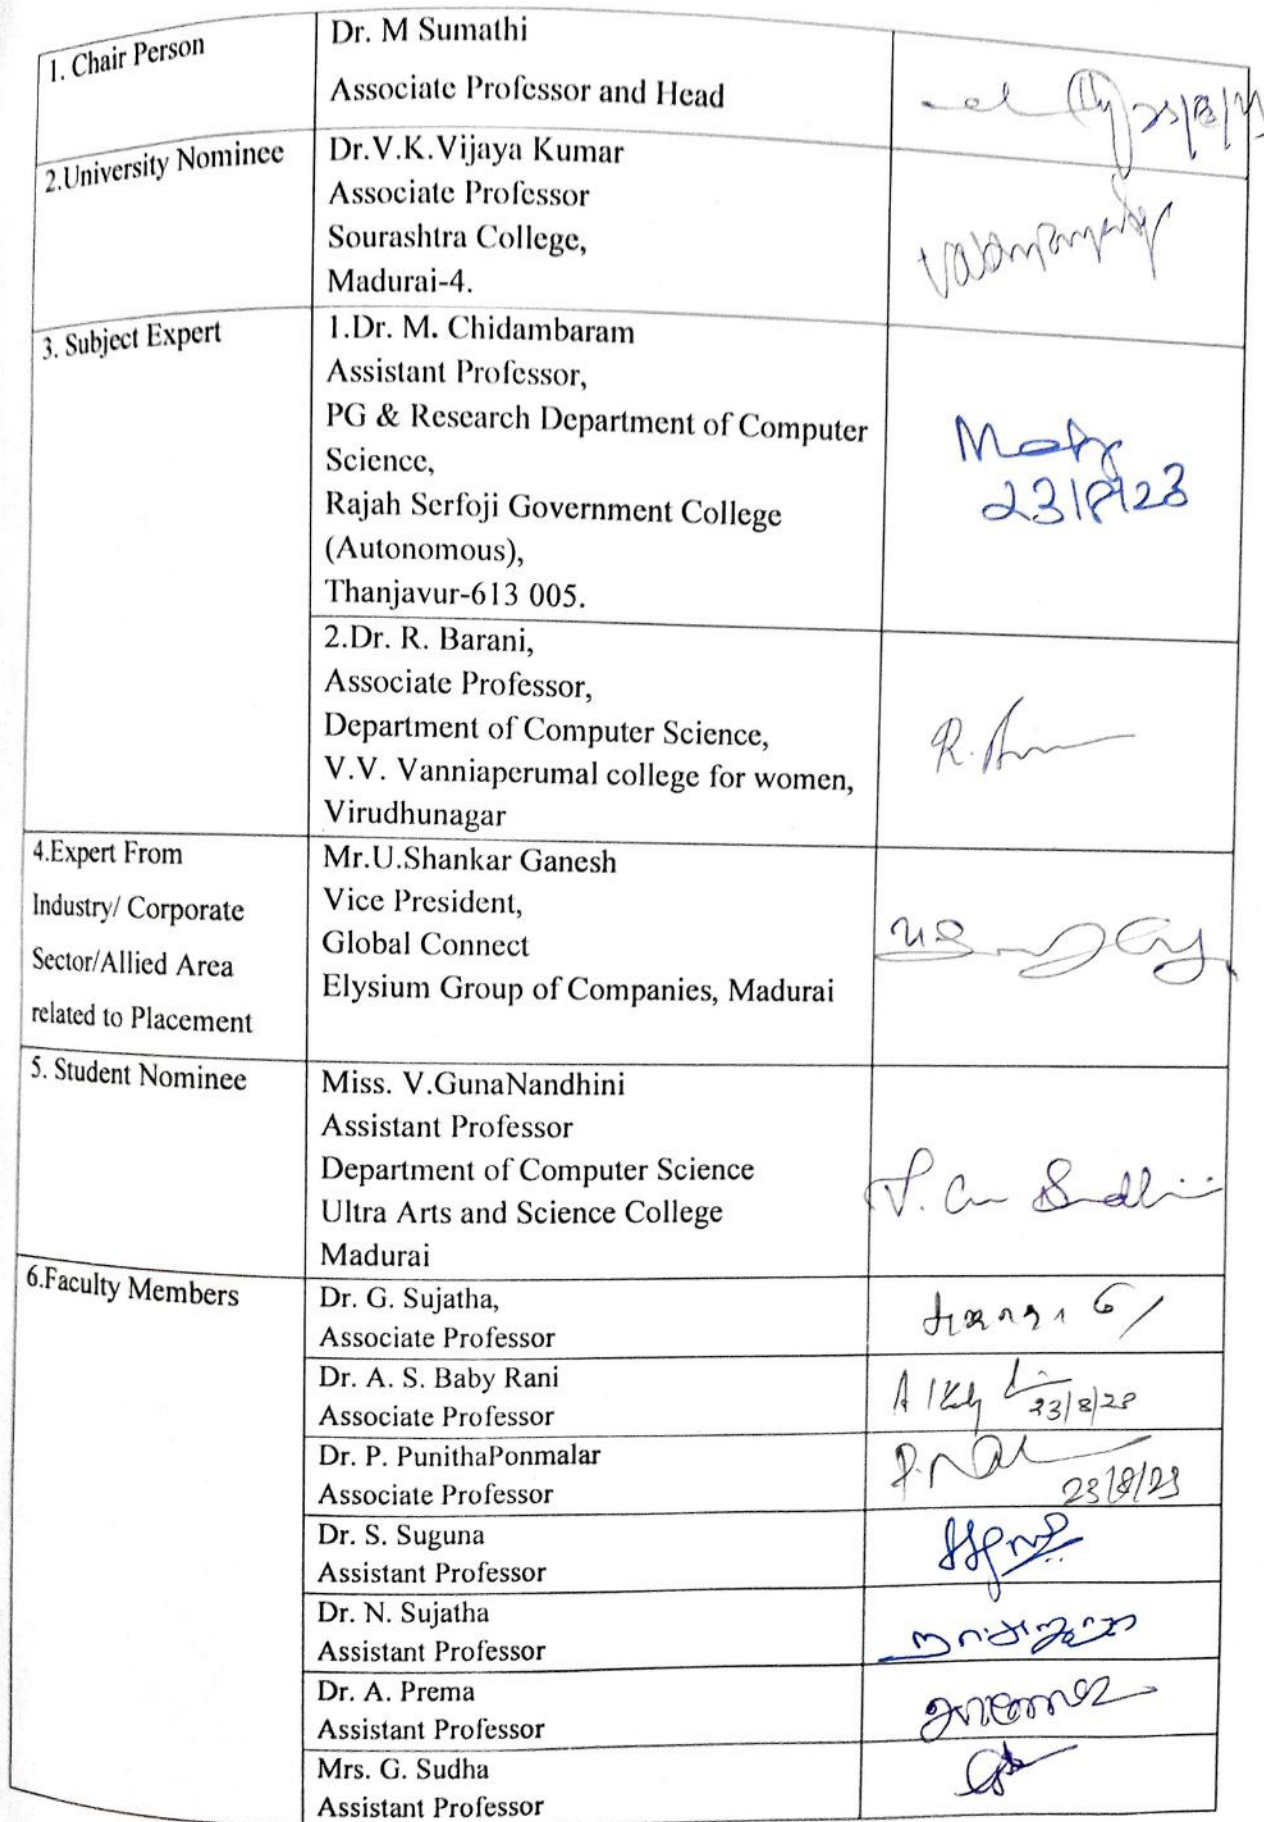 1. Chair Person
Dr. M Sumathi
Associate Professor and Head
2.University Nominee
Dr.V.K.Vijaya Kumar
Associate Professor
Sourashtra College,
Madurai-4.
3. Subject Expert
1.Dr. M. Chidambaram
Assistant Professor,
PG & Research Department of Computer
Science,
Rajah Serfoji Government College
(Autonomous),
Thanjavur-613 005.
23/8/23
2.Dr. R. Barani,
Associate Professor,
Department of Computer Science,
V.V. Vanniaperumal college for women,
Virudhunagar
R.
4.Expert From
Industry/ Corporate
Sector/Allied Area
related to Placement
Mr.U.Shankar Ganesh
Vice President,
Global Connect
Elysium Group of Companies, Madurai
5. Student Nominee
Miss. V.GunaNandhini
Assistant Professor
Department of Computer Science
Ultra Arts and Science College
Madurai
6.Faculty Members
Dr. G. Sujatha,
Associate Professor
Dr. A. S. Baby Rani
Associate Professor
23/8/23
Dr. P. PunithaPonmalar
Associate Professor
23/8/23
Dr. S. Suguna
Assistant Professor
Dr. N. Sujatha
Assistant Professor
Dr. A. Prema
Assistant Professor
Mrs. G. Sudha
Assistant Professor